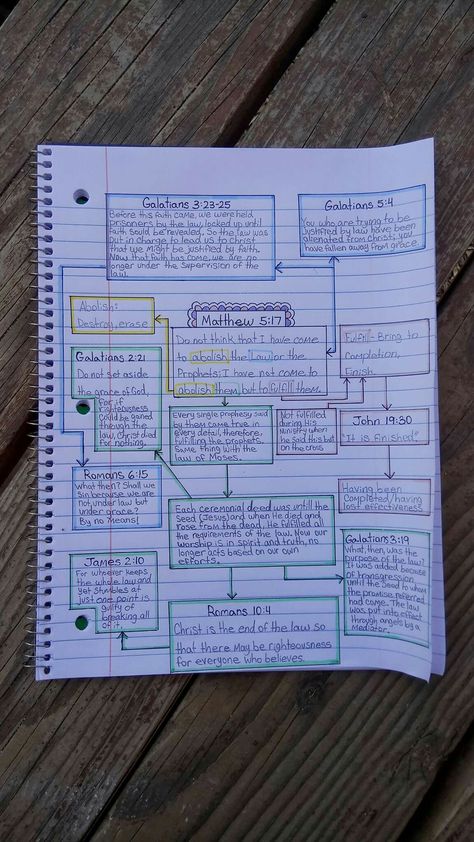 Galatians 3:23-25
Before this faith came, we were held
prisoners by the law, locked up until
faith sould be revealed. So the law was
put in charge to lead us to Christ
that we might be justified by faith.
Now that faith has come, we are no
longer under the supervision of the
law.
Galatians 5:4
You who are trying to be
justified by law have been
alienated from Christ; you
have fallen away from grace.
Abolish:
Destroy, erase
Matthew 5:17
Do not think that I have come
to abolish the Law or the
Prophets; I have not come to
abolish them, but to fulfill them.
Fulfill - Bring to
Completion,
Finish.
Galatians 2:21
Do not set aside
the grace of God,
for if
righteousness
could be gained
through the
law, Christ died
for nothing.
Every single Prophesy said
by them came true in
every detail, therefore,
fulfilling the prophets.
Same thing with the
law of Moses.
Not fulfilled
during His
ministry when
he said this but
on the cross
John 19:30
"It is finished"
Having been
completed/having
lost effectiveness
Romans 6:15
What then? Shall we
sin because we are
not under law but
under grace?
By no means!
Each ceremonial deed was untill the
Seed (Jesus) and when He died and
rose from the dead, He fulfilled all
the requirements of the law. Now our
worship is in spirit and truth, no
longer acts based on our own
efforts.
Galatians 3:19
What, then, was the
purpose of the law?
It was added because
of transgression
until the Seed to whom
the promise referred
had come. The law
was put into effect
through angels by a
Mediator.
James 2:10
For whoever keeps
the whole law and
yet stumbles at
just one point is
guilty of
breaking all
of it.
Romans 10:4
Christ is the end of the law so
that there may be righteousness
for everyone who believes.